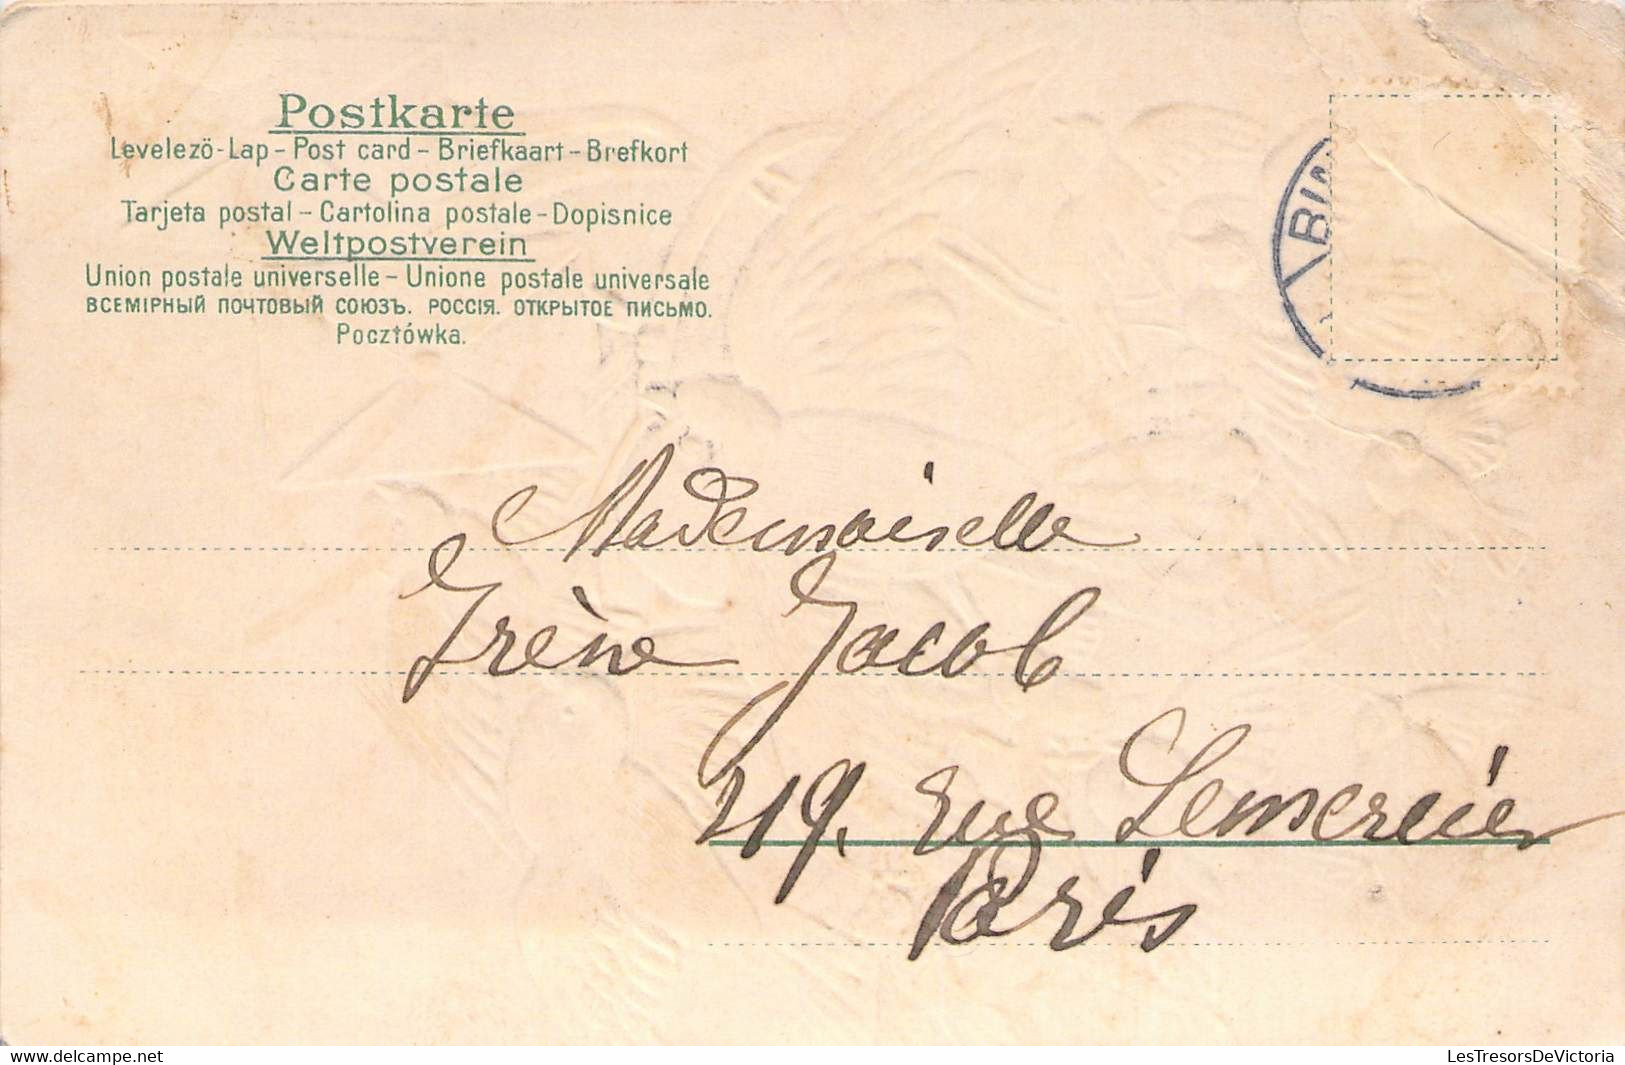 Postkarte
Levelezö-Lap - Post card - Briefkaart - Brefkort
Carte postale
Tarjeta postal - Cartolina postale - Dopisnice
Weltpostverein
Union postale universelle - Unione postale universale
ВСЕМІРНЫЙ ПОЧТОВЫЙ СОЮЗЪ. РОССІЯ. ОТКРЫТОЕ ПИСЬМО.
Pocztówka.
Mademoiselle
Irène Jacob
219. Rue Lemercier
Paris
delcampe.net
LesTresorsDeVictoria